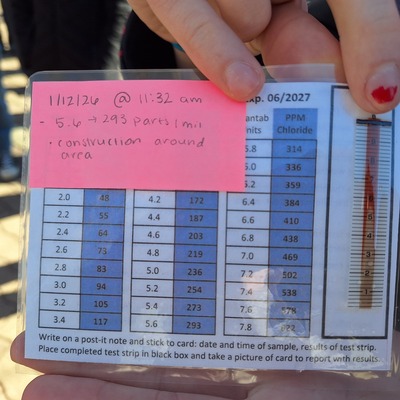 1/12/26 @ 11:32 am
- 5.6 → 293 parts/mil
• construction around
area
Exp. 06/2027
Quantab Units PPM Chloride
5.8 314
6.0 336
6.2 359
2.0 48 4.2 172 6.4 384
2.2 55 4.4 187 6.6 410
2.4 64 4.6 203 6.8 438
2.6 73 4.8 219 7.0 469
2.8 83 5.0 236 7.2 502
3.0 94 5.2 254 7.4 538
3.2 105 5.4 273 7.6 578
3.4 117 5.6 293 7.8 622
6
5
4
3
2
1
Write on a post-it note and stick to card: date and time of sample, results of test strip.
Place completed test strip in black box and take a picture of card to report with results.